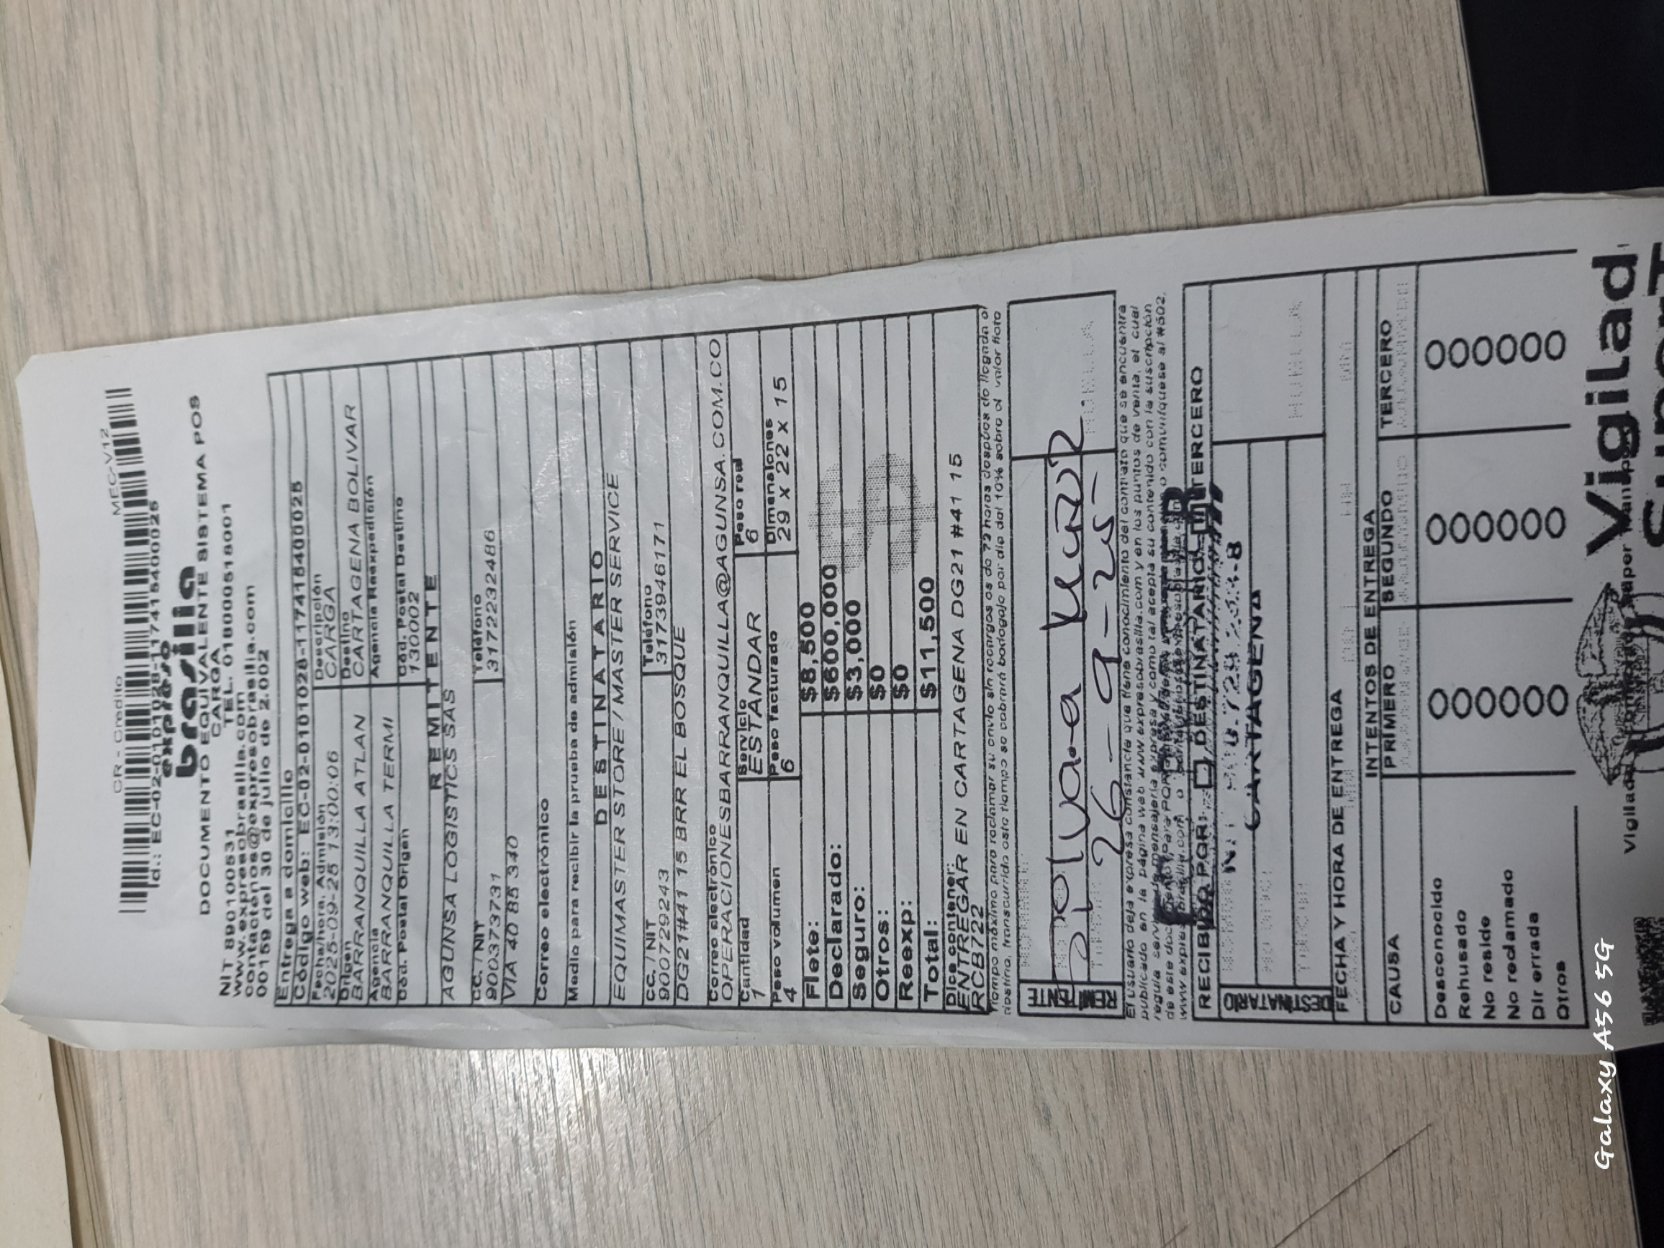 CR - Credito MEC-V12
Id.: EC-02-0101028-1174154000025
expreso
brasilia
DOCUMENTO EQUIVALENTE SISTEMA POS
CARGA
NIT 890100531 TEL. 018000518001
www.expresobrasilia.com
contactenos@expresobrasilia.com
00159 del 30 de julio de 2.002
Entrega a domicilio
Código web: EC-02-0101028-1174154000025
Fecha/hora. Admisión Descripción
2025-09-25 13:00:06 CARGA
Origen Destino
BARRANQUILLA ATLAN CARTAGENA BOLIVAR
Agencia Agencia Reexpedición
BARRANQUILLA TERMI
Cod. Postal Origen Cód. Postal Destino
130002
REMITENTE
AGUNSA LOGISTICS SAS
CC. / NIT Teléfono
900373731 3172232486
VIA 40 85 340
Correo electrónico
Medio para recibir la prueba de admisión
DESTINATARIO
EQUIMASTER STORE / MASTER SERVICE
CC. / NIT Teléfono
900729243 3173946171
DG21#41 15 BRR EL BOSQUE
Correo electrónico
OPERACIONESBARRANQUILLA@AGUNSA.COM.CO
Cantidad Servicio Peso real
1 ESTANDAR 6
Peso volumen Peso facturado Dimensiones
4 6 29 X 22 X 15
Flete: $8,500
Declarado: $600,000
Seguro: $3,000
Otros: $0
Reexp: $0
Total: $11,500
Dice contener:
ENTREGAR EN CARTAGENA DG21 #41 15
RCB722
Tiempo máximo para reclamar su envío sin recargos es de 72 horas después de llegada al
destino, transcurrido este tiempo se cobrará bodegaje por día del 10% sobre el valor flete
26-9-25
El usuario deja expresa constancia que tiene conocimiento del contrato que se encuentra
publicado en la página web www.expresobrasilia.com y en los puntos de venta, el cual
RECIBIDO POR: DESTINATARIO TERCERO
CARTAGENA
FECHA Y HORA DE ENTREGA
INTENTOS DE ENTREGA
CAUSA PRIMERO SEGUNDO TERCERO
Desconocido
Rehusado
No reside
No reclamado
Dir errada
Otros
Vigilad
SuperT
Galaxy A56 5G